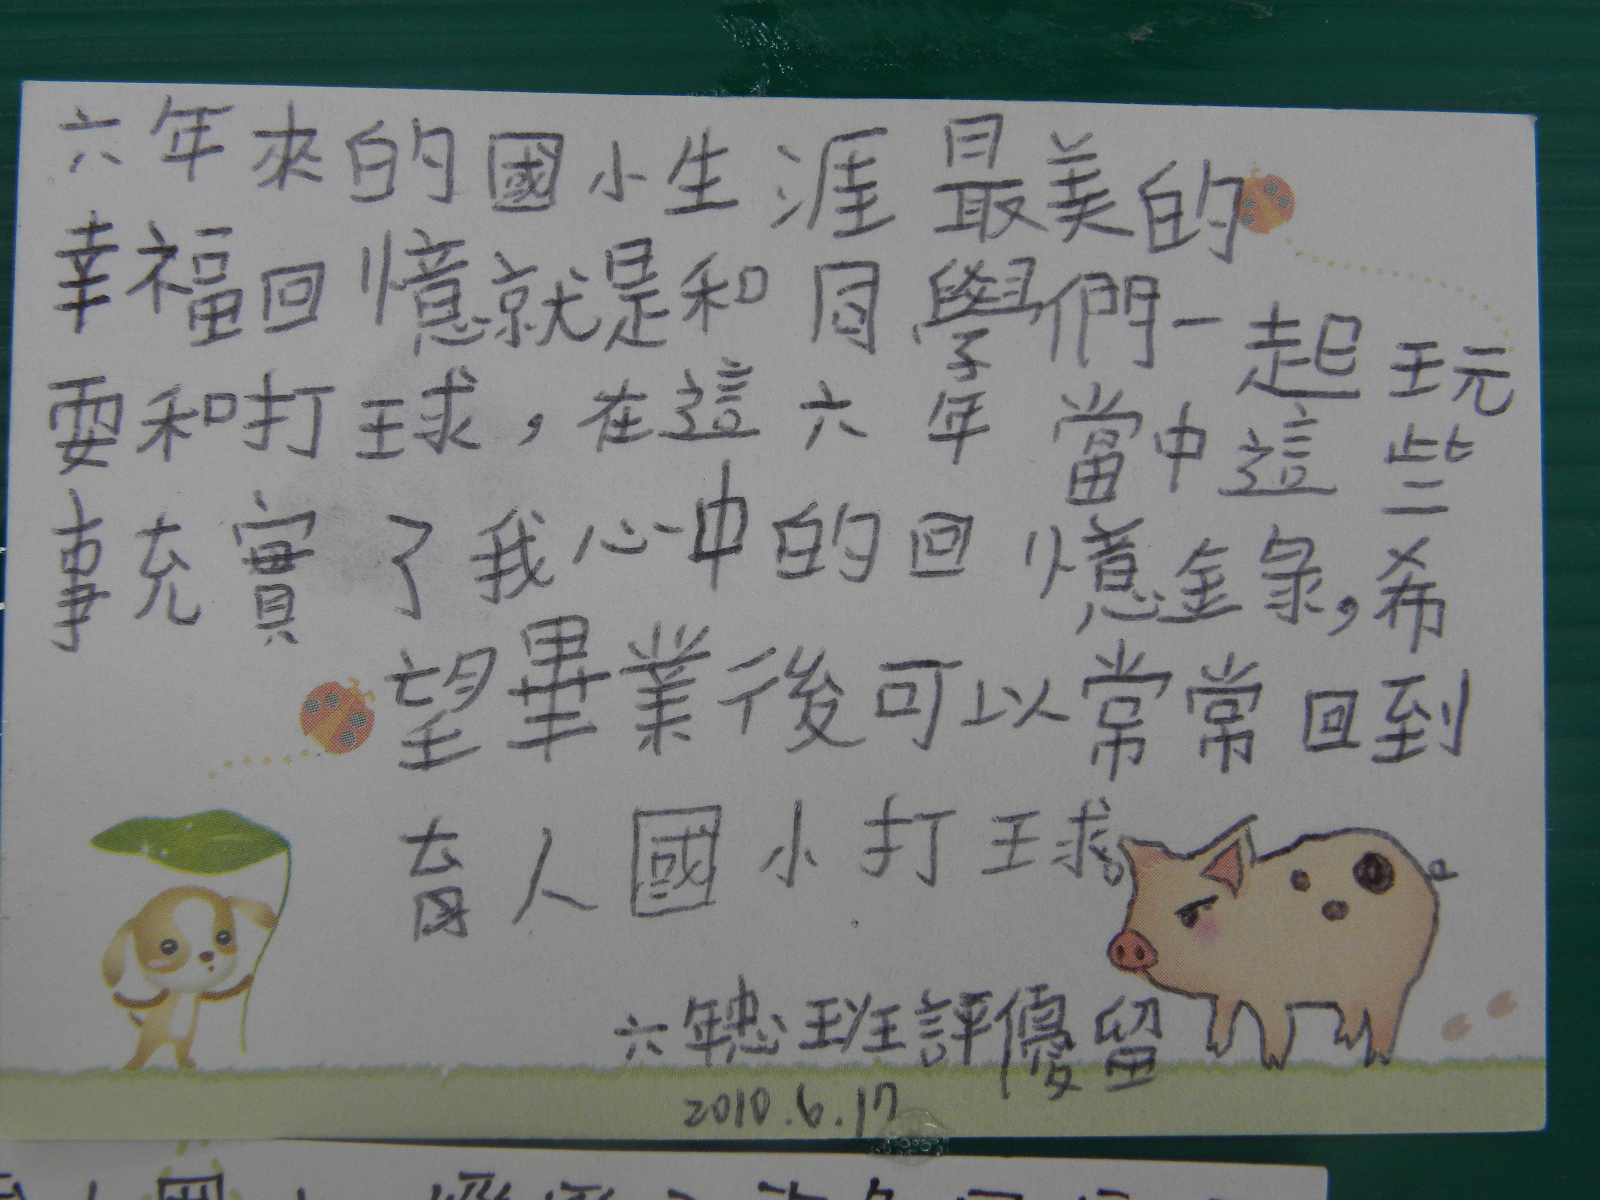 六年來的國小生涯最美的
幸福回憶就是和同學們一起玩
耍和打球，在這六年當中這些
事充實了我心中的回憶金彔，希
望畢業後可以常常回到
育人國小打球。
六年忠班評優留
2010.6.17